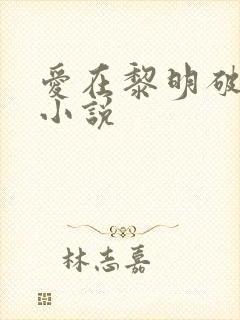 愛在黎明破
小說
林志嘉